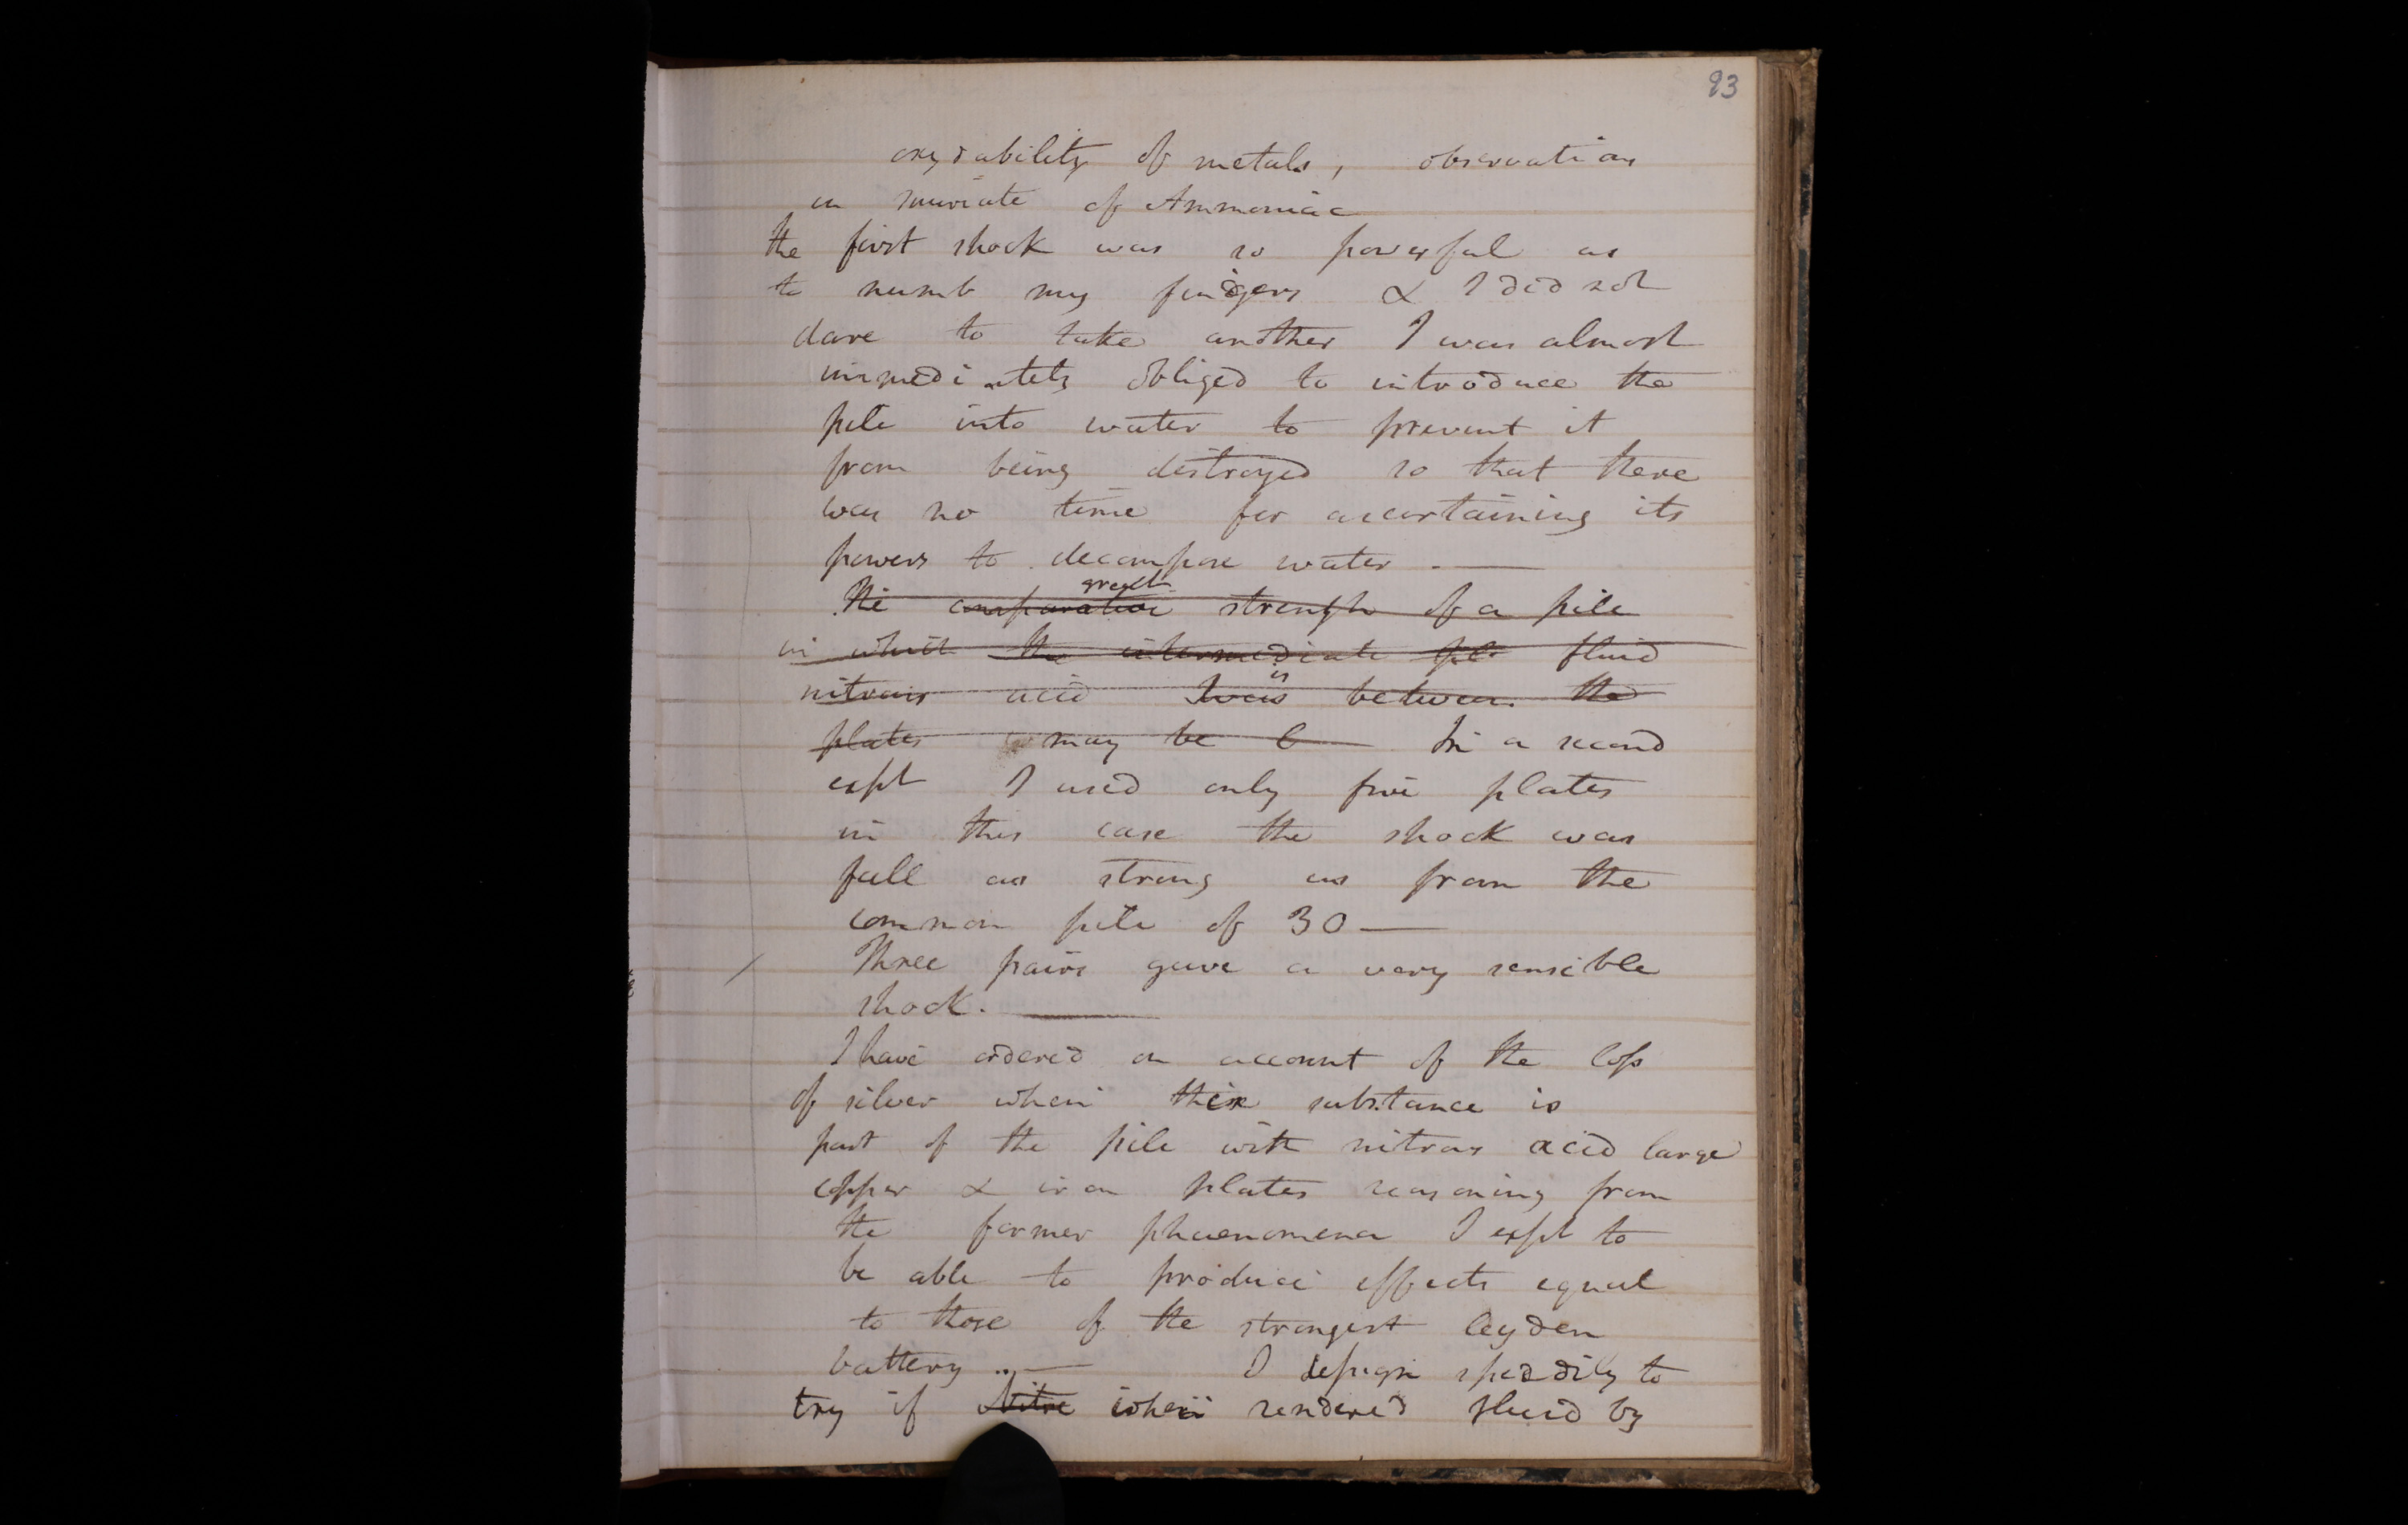 93
oxydability of metals, observation
on muriate of Ammoniac
the first shock was so powerful as
to numb my fingers & I did not
dare to take another I was almost
immediately obliged to introduce the
pile into water to prevent it
from being destroyed so that there
was no time for ascertaining its
powers to decompose water . —
great
The comparative strength of a pile
in which the intermediate pil fluid
is
nitrous acid was between the
plates may be In a second
expt I used only five plates
in this case the shock was
full as strong as from the
common pile of 30 —
Three pairs gave a very sensible
shock. —
I have ordered on account of the loss
of silver when this substance is
part of the pile with nitrous acid large
copper & iron plates reasoning from
the former phaenomena I expt to
be able to produce effects equal
to those of the strongest leyden
battery .. — I design speedily to
try if Nitre when rendered fluid by